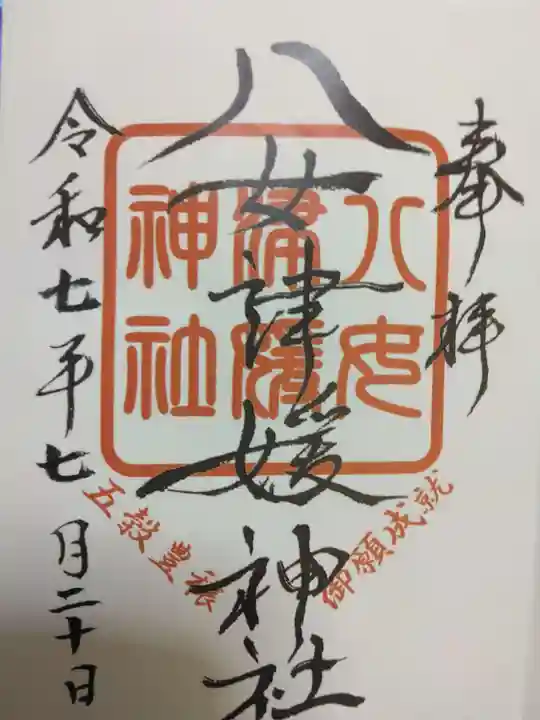 奉拝
八女津媛神社
八女
津媛
神社
御願成就
五穀豊穣
令和七年七月二十日